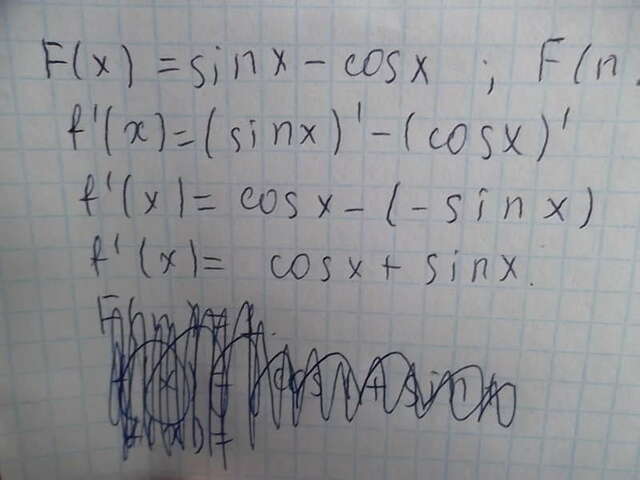 F(x) = sinx - cosx ; F(n
f'(x) = (sinx)' - (cosx)'
f'(x) = cosx - (-sinx)
f'(x) = cosx + sinx.